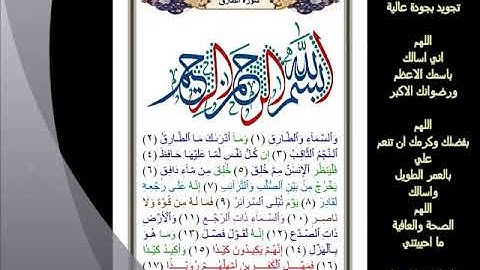 سورة الطارق
بسم الله الرحمن الرحيم
وَالسَّمَاءِ وَالطَّارِقِ (١) وَمَا أَدْرَىٰكَ مَا الطَّارِقُ (٢)
النَّجْمُ الثَّاقِبُ (٣) إِن كُلُّ نَفْسٍ لَّمَّا عَلَيْهَا حَافِظٌ (٤)
فَلْيَنظُرِ الْإِنسَٰنُ مِمَّ خُلِقَ (٥) خُلِقَ مِن مَّاءٍ دَافِقٍ (٦)
يَخْرُجُ مِن بَيْنِ الصُّلْبِ وَالتَّرَائِبِ (٧) إِنَّهُ عَلَىٰ رَجْعِهِ
لَقَادِرٌ (٨) يَوْمَ تُبْلَى السَّرَائِرُ (٩) فَمَا لَهُ مِن قُوَّةٍ وَلَا
نَاصِرٍ (١٠) وَالسَّمَاءِ ذَاتِ الرَّجْعِ (١١) وَالْأَرْضِ
ذَاتِ الصَّدْعِ (١٢) إِنَّهُ لَقَوْلٌ فَصْلٌ (١٣) وَمَا هُوَ
بِالْهَزْلِ (١٤) إِنَّهُمْ يَكِيدُونَ كَيْدًا (١٥) وَأَكِيدُ كَيْدًا
(١٦) فَمَهِّلِ الْكَٰفِرِينَ أَمْهِلْهُمْ رُوَيْدًا (١٧)
تجويد بجودة عالية
اللهم
اني اسالك
باسمك الاعظم
ورضوانك الاكبر
اللهم
بفضلك وكرمك ان تنعم
علي
بالعمر الطويل
واسالك
اللهم
الصحة والعافية
ما احييتني